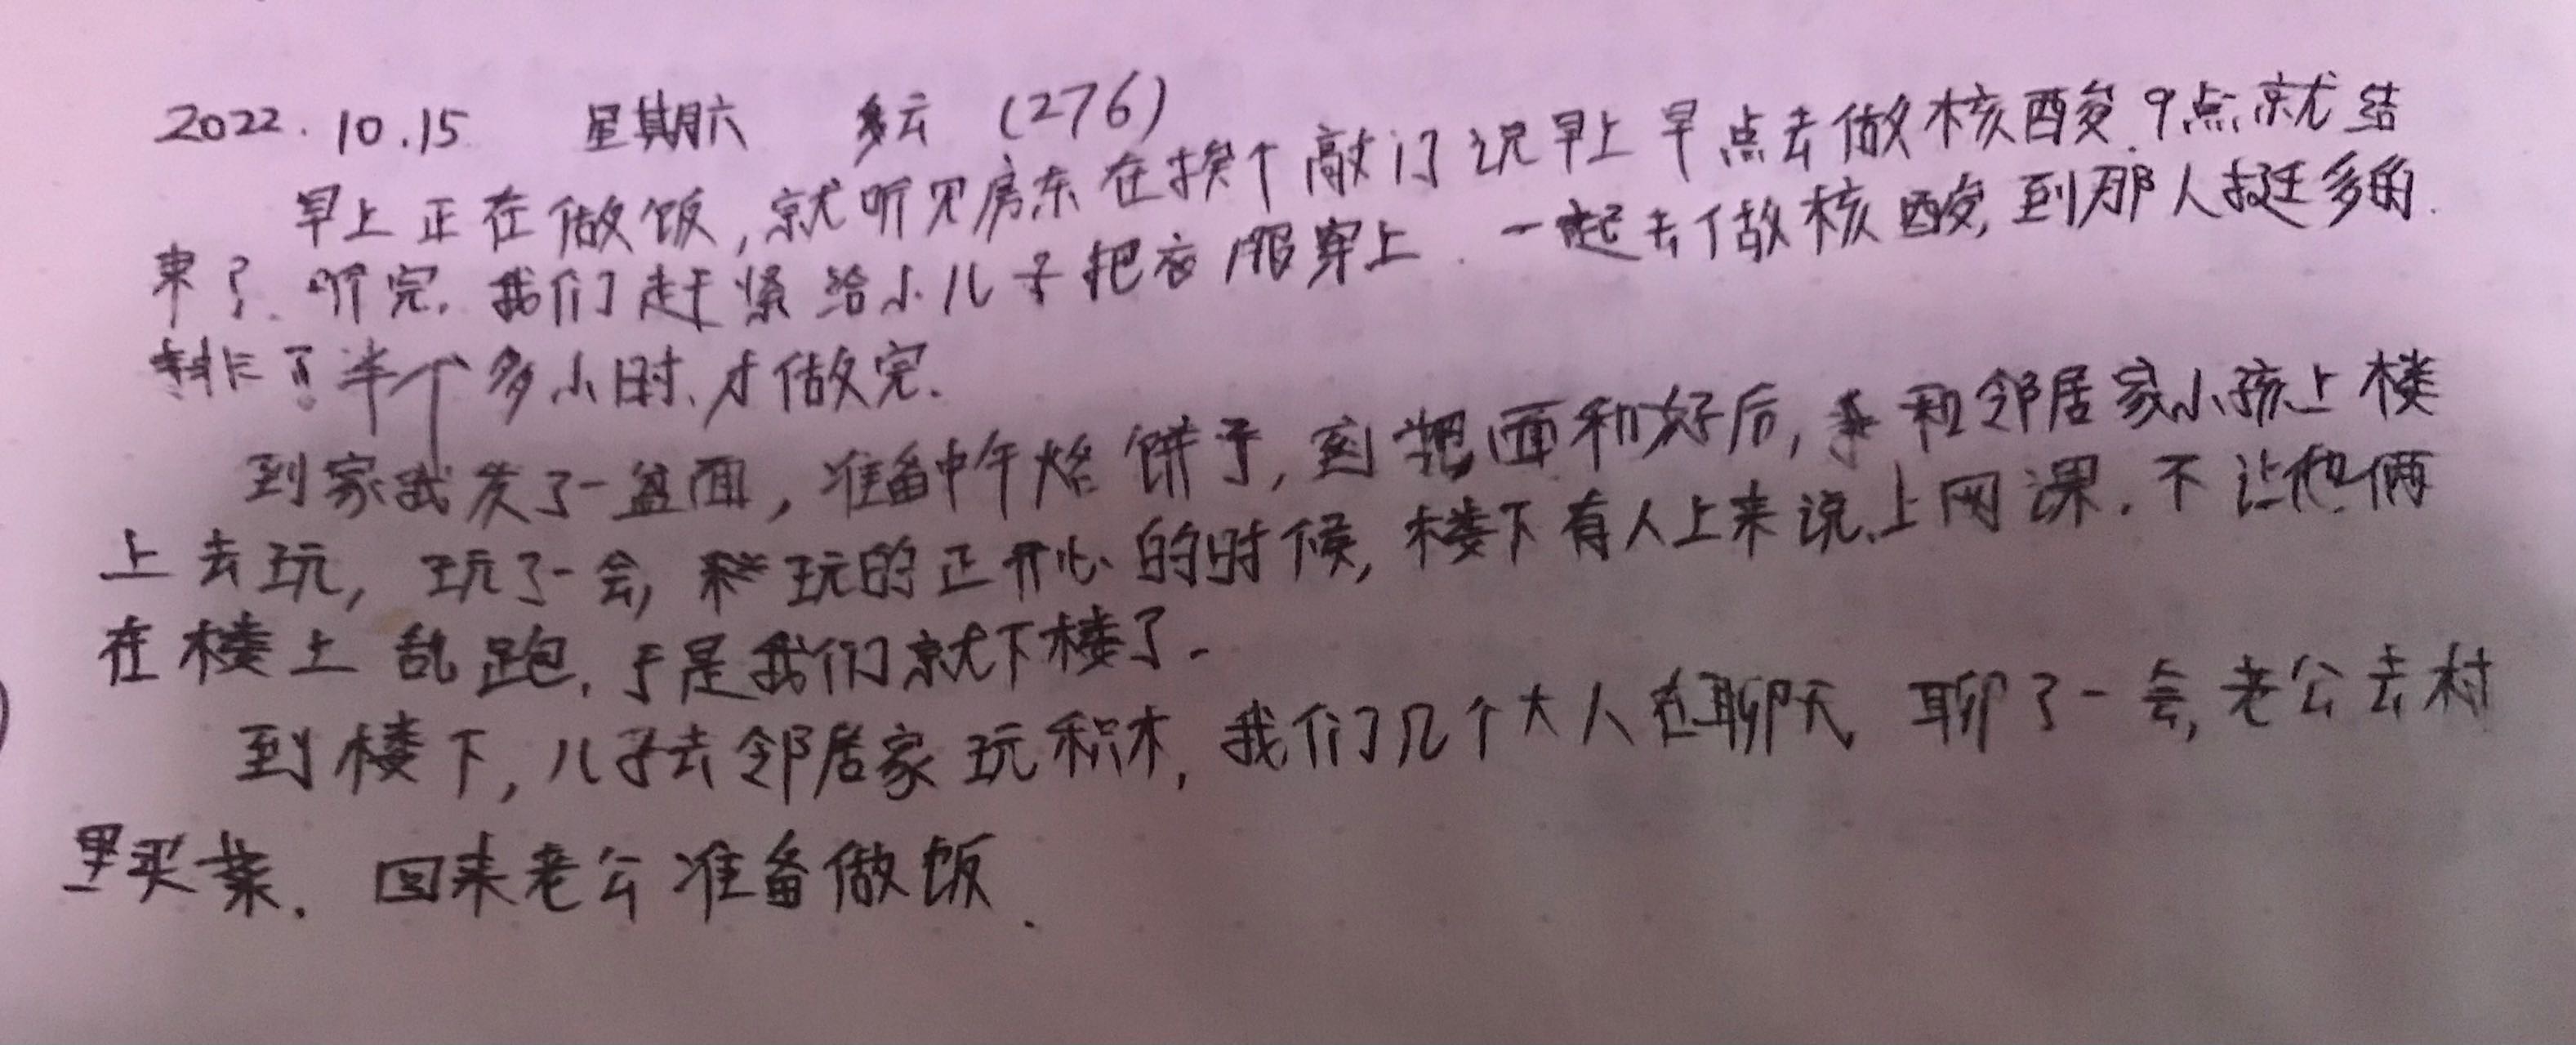 2022.10.15 星期六 多云 (276)
早上正在做饭,就听见房东在挨个敲门说早上早点去做核酸.9点就结
束了.听完.我们赶紧给小儿子把衣服穿上.一起去做核酸,到那人挺多的.
排了半个多小时.才做完.
到家我发了一盆面,准备中午烙饼子,把面和好后,和邻居家小孩上楼
上去玩,玩了一会,玩的正开心的时候,楼下有人上来说.上网课.不让他俩
在楼上乱跑.于是我们就下楼了.
到楼下,儿子去邻居家玩积木,我们几个大人在聊天 聊了一会,老公去村
里买菜.回来老公准备做饭.